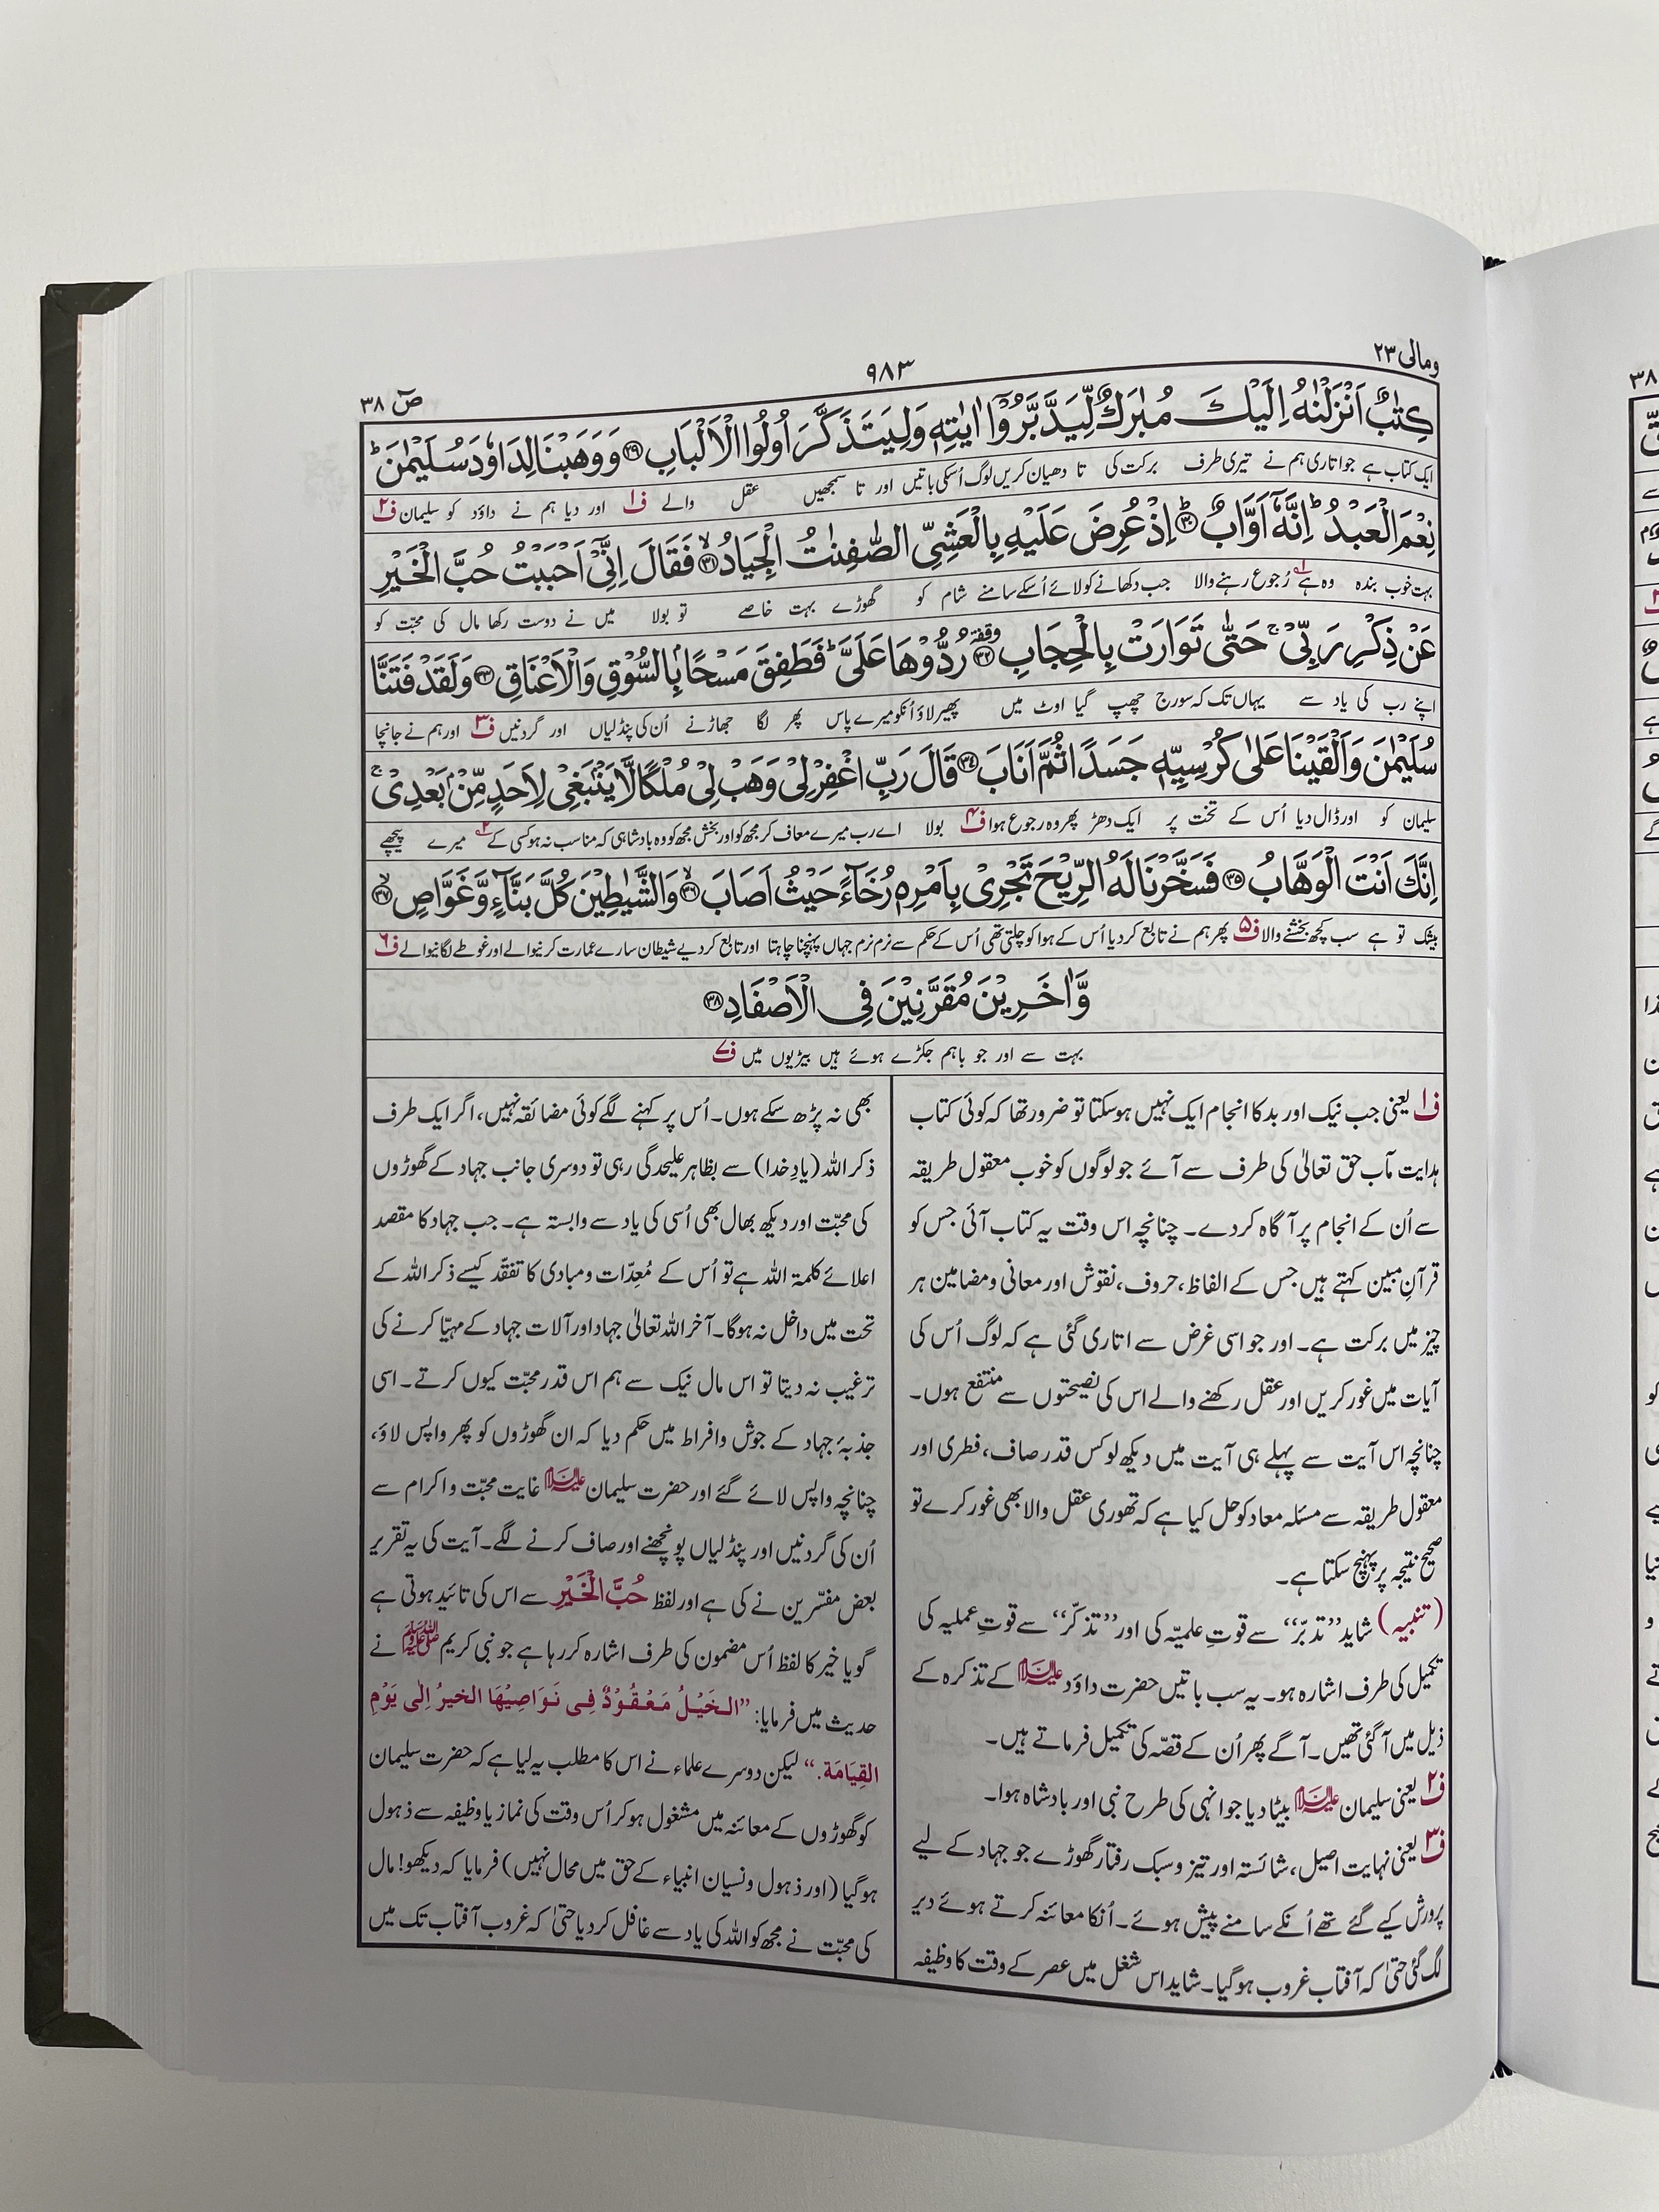 ومالی ۲۳
۹۸۳
صٓ ۳۸
كِتٰبٌ اَنْزَلْنٰهُ اِلَيْكَ مُبٰرَكٌ لِّيَدَّبَّرُوْٓا اٰيٰتِهٖ وَلِيَتَذَكَّرَ اُولُوا الْاَلْبَابِ ﴿۲۹﴾ وَوَهَبْنَا لِدَاوٗدَ سُلَيْمٰنَ ؕ
ایک کتاب ہے جو اتاری ہم نے تیری طرف برکت کی تا دھیان کریں لوگ اُسکی باتیں اور تا سمجھیں عقل والے ف۱ اور دیا ہم نے داؤد کو سلیمان ف۲
نِعْمَ الْعَبْدُ ؕ اِنَّهٗٓ اَوَّابٌ ﴿۳۰﴾ؕ اِذْ عُرِضَ عَلَيْهِ بِالْعَشِيِّ الصّٰفِنٰتُ الْجِيَادُ ﴿۳۱﴾ۙ فَقَالَ اِنِّيْٓ اَحْبَبْتُ حُبَّ الْخَيْرِ
بہت خوب بندہ وہ ہے رُجوع رہنے والا جب دکھانے کو لائے اُسکے سامنے شام کو گھوڑے بہت خاصے تو بولا میں نے دوست رکھا مال کی محبّت کو
عَنْ ذِكْرِ رَبِّيْ ۚ حَتّٰى تَوَارَتْ بِالْحِجَابِ ﴿۳۲﴾ وقفة رُدُّوْهَا عَلَيَّ ؕ فَطَفِقَ مَسْحًۢا بِالسُّوْقِ وَالْاَعْنَاقِ ﴿۳۳﴾ وَلَقَدْ فَتَنَّا
اپنے رب کی یاد سے یہاں تک کہ سورج چھپ گیا اوٹ میں پھیر لاؤ اُنکو میرے پاس پھر لگا جھاڑنے اُن کی پنڈلیاں اور گردنیں ف۳ اور ہم نے جانچا
سُلَيْمٰنَ وَاَلْقَيْنَا عَلٰى كُرْسِيِّهٖ جَسَدًا ثُمَّ اَنَابَ ﴿۳۴﴾ قَالَ رَبِّ اغْفِرْ لِيْ وَهَبْ لِيْ مُلْكًا لَّا يَنْۢبَغِيْ لِاَحَدٍ مِّنْۢ بَعْدِيْ ۚ
سلیمان کو اور ڈال دیا اُس کے تخت پر ایک دھڑ پھر وہ رجوع ہوا ف۴ بولا اے رب میرے معاف کر مجھ کو اور بخش مجھ کو وہ بادشاہی کہ مناسب نہ ہو کسی کے میرے پیچھے
اِنَّكَ اَنْتَ الْوَهَّابُ ﴿۳۵﴾ فَسَخَّرْنَا لَهُ الرِّيْحَ تَجْرِيْ بِاَمْرِهٖ رُخَآءً حَيْثُ اَصَابَ ﴿۳۶﴾ۙ وَالشَّيٰطِيْنَ كُلَّ بَنَّآءٍ وَّغَوَّاصٍ ﴿۳۷﴾ۙ
بیشک تو ہے سب کچھ بخشنے والا ف۵ پھر ہم نے تابع کر دیا اُس کے ہوا کو چلتی تھی اُس کے حکم سے نرم نرم جہاں پہنچنا چاہتا اور تابع کر دیے شیطان سارے عمارت کرنیوالے اور غوطے لگانیوالے ف۶
وَّاٰخَرِيْنَ مُقَرَّنِيْنَ فِي الْاَصْفَادِ ﴿۳۸﴾
بہت سے اور جو باہم جکڑے ہوئے ہیں بیڑیوں میں ف۷
ف۱ یعنی جب نیک اور بد کا انجام ایک نہیں ہو سکتا تو ضرور تھا کہ کوئی کتاب
ہدایت مآب حق تعالیٰ کی طرف سے آئے جو لوگوں کو خوب معقول طریقہ
سے اُن کے انجام پر آگاہ کر دے۔ چنانچہ اس وقت یہ کتاب آئی جس کو
قرآنِ مبین کہتے ہیں جس کے الفاظ، حروف، نقوش اور معانی و مضامین ہر
چیز میں برکت ہے۔ اور جو اسی غرض سے اتاری گئی ہے کہ لوگ اُس کی
آیات میں غور کریں اور عقل رکھنے والے اس کی نصیحتوں سے منتفع ہوں۔
چنانچہ اس آیت سے پہلے ہی آیت میں دیکھ لو کس قدر صاف، فطری اور
معقول طریقہ سے مسئلہ معاد کو حل کیا ہے کہ تھوری عقل والا بھی غور کرے تو
صحیح نتیجہ پر پہنچ سکتا ہے۔
(تنبیہ) شاید ”تدبّر“ سے قوتِ علمیّہ کی اور ”تذکّر“ سے قوتِ عملیہ کی
تکمیل کی طرف اشارہ ہو۔ یہ سب باتیں حضرت داؤد علیہ السلام کے تذکرہ کے
ذیل میں آ گئی تھیں۔ آگے پھر اُن کے قصّہ کی تکمیل فرماتے ہیں۔
ف۲ یعنی سلیمان علیہ السلام بیٹا دیا جو انہی کی طرح نبی اور بادشاہ ہوا۔
ف۳ یعنی نہایت اصیل، شائستہ اور تیز و سبک رفتار گھوڑے جو جہاد کے لیے
پرورش کیے گئے تھے اُنکے سامنے پیش ہوئے۔ اُنکا معائنہ کرتے ہوئے دیر
لگ گئی حتیٰ کہ آفتاب غروب ہو گیا۔ شاید اس شغل میں عصر کے وقت کا وظیفہ
بھی نہ پڑھ سکے ہوں۔ اُس پر کہنے لگے کوئی مضائقہ نہیں، اگر ایک طرف
ذکر اللہ (یادِ خدا) سے بظاہر علیحدگی رہی تو دوسری جانب جہاد کے گھوڑوں
کی محبّت اور دیکھ بھال بھی اُسی کی یاد سے وابستہ ہے۔ جب جہاد کا مقصد
اعلائے کلمۃ اللہ ہے تو اُس کے مُعِدّات و مبادی کا تفقّد کیسے ذکر اللہ کے
تحت میں داخل نہ ہوگا۔ آخر اللہ تعالیٰ جہاد اور آلات جہاد کے مہیّا کرنے کی
ترغیب نہ دیتا تو اس مال نیک سے ہم اس قدر محبّت کیوں کرتے۔ اسی
جذبۂ جہاد کے جوش و افراط میں حکم دیا کہ ان گھوڑوں کو پھر واپس لاؤ،
چنانچہ واپس لائے گئے اور حضرت سلیمان علیہ السلام غایت محبّت و اکرام سے
اُن کی گردنیں اور پنڈلیاں پونچھنے اور صاف کرنے لگے۔ آیت کی یہ تقریر
بعض مفسّرین نے کی ہے اور لفظ حُبَّ الْخَيْرِ سے اس کی تائید ہوتی ہے
گویا خیر کا لفظ اُس مضمون کی طرف اشارہ کر رہا ہے جو نبی کریم ﷺ نے
حدیث میں فرمایا: ”الخَيْلُ مَعْقُوْدٌ فِي نَوَاصِيْهَا الخيرُ اِلٰى يَوْمِ
القِيَامَة.“ لیکن دوسرے علماء نے اس کا مطلب یہ لیا ہے کہ حضرت سلیمان
کو گھوڑوں کے معائنہ میں مشغول ہو کر اُس وقت کی نماز یا وظیفہ سے ذہول
ہو گیا (اور ذہول و نسیان انبیاء کے حق میں محال نہیں) فرمایا کہ دیکھو! مال
کی محبّت نے مجھ کو اللہ کی یاد سے غافل کر دیا حتیٰ کہ غروب آفتاب تک میں